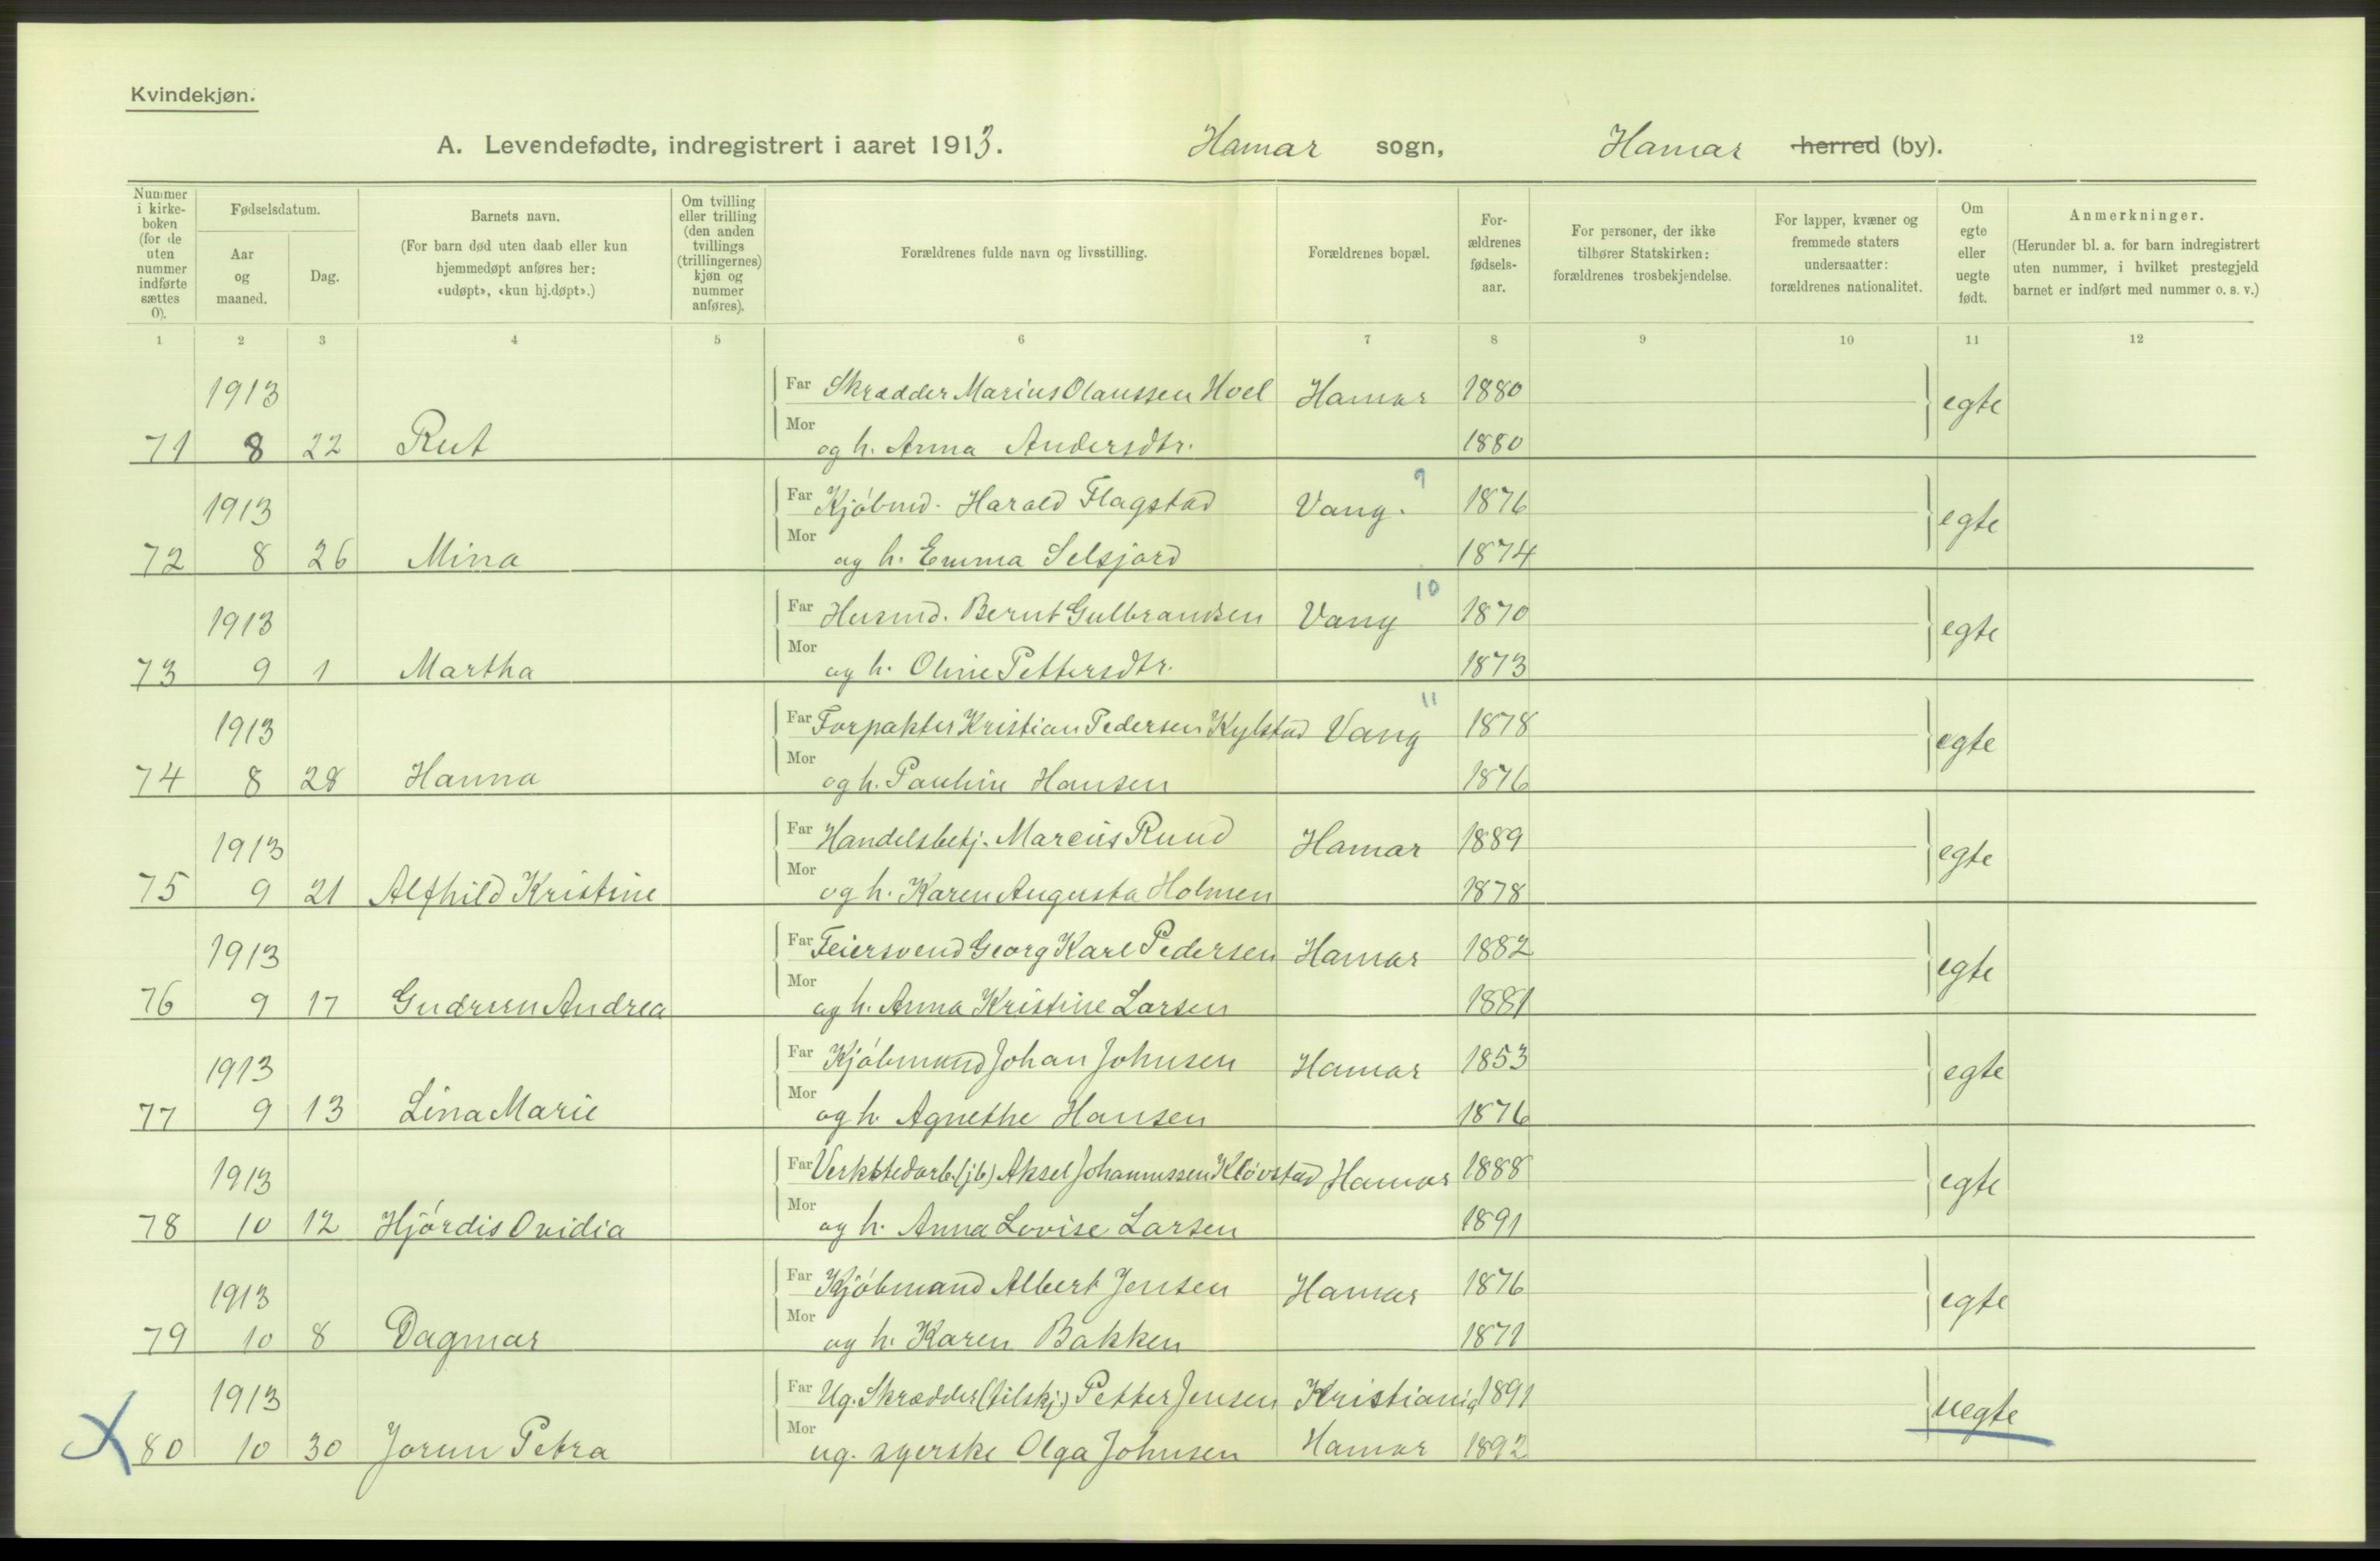 Kvindekjøn.
A. Levendefødte, indregistrert i aaret 1913. Hamar sogn, Hamar herred (by).
Nummer i kirkeboken (for de uten nummer indførte sættes 0).
Fødselsdatum.
Aar og maaned.
Dag.
Barnets navn.
(For barn død uten daab eller kun hjemmedøpt anføres her: «udøpt», «kun hj.døpt».)
Om tvilling eller trilling (den anden tvillings (trillingernes) kjøn og nummer anføres).
Forældrenes fulde navn og livsstilling.
Forældrenes bopæl.
For-ældrenes fødsels-aar.
For personer, der ikke tilhører Statskirken: forældrenes trosbekjendelse.
For lapper, kvæner og fremmede staters undersaatter: forældrenes nationalitet.
Om egte eller uegte født.
Anmerkninger.
(Herunder bl. a. for barn indregistrert uten nummer, i hvilket prestegjeld barnet er indført med nummer o. s. v.)
1 2 3 4 5 6 7 8 9 10 11 12
1913 Far Skrædder Marius Olaussen Hoel Hamar 1880 egte
71 8 22 Rut Mor og h. Anna Andersdtr. 1880
9
1913 Far Kjöbmd. Harald Flagstad Vang. 1876 egte
72 8 26 Mina Mor og h. Emma Selsjord 1874
10
1913 Far Husmd. Bernt Gulbrandsen Vang 1870 egte
73 9 1 Martha Mor og h. Oline Pettersdtr. 1873
11
1913 Far Forpakter Kristian Pedersen Kylstad Vang 1878 egte
74 8 28 Hanna Mor og h. Pauline Hansen 1876
1913 Far Handelsbetj. Marcus Ruud Hamar 1889 egte
75 9 21 Alfhild Kristine Mor og h. Karen Augusta Holmen 1878
1913 Far Feiersvend Georg Karl Pedersen Hamar 1882 egte
76 9 17 Gudrun Andrea Mor og h. Anna Kristine Larsen 1881
1913 Far Kjöbmand Johan Johnsen Hamar 1853 egte
77 9 13 Lina Marie Mor og h. Agnethe Hansen 1876
1913 Far Verkstedarb. (jb) Aksel Johannessen Klövstad Hamar 1888 egte
78 10 12 Hjördis Ovidia Mor og h. Anna Lovise Larsen 1891
1913 Far Kjöbmand Albert Jensen Hamar 1876 egte
79 10 8 Dagmar Mor og h. Karen Bakken 1871
1913 Far Ug. Skrædder (tilskj.) Petter Jensen Kristiania 1891 uegte
80 10 30 Jorun Petra Mor ug. syerske Olga Johnsen Hamar 1892